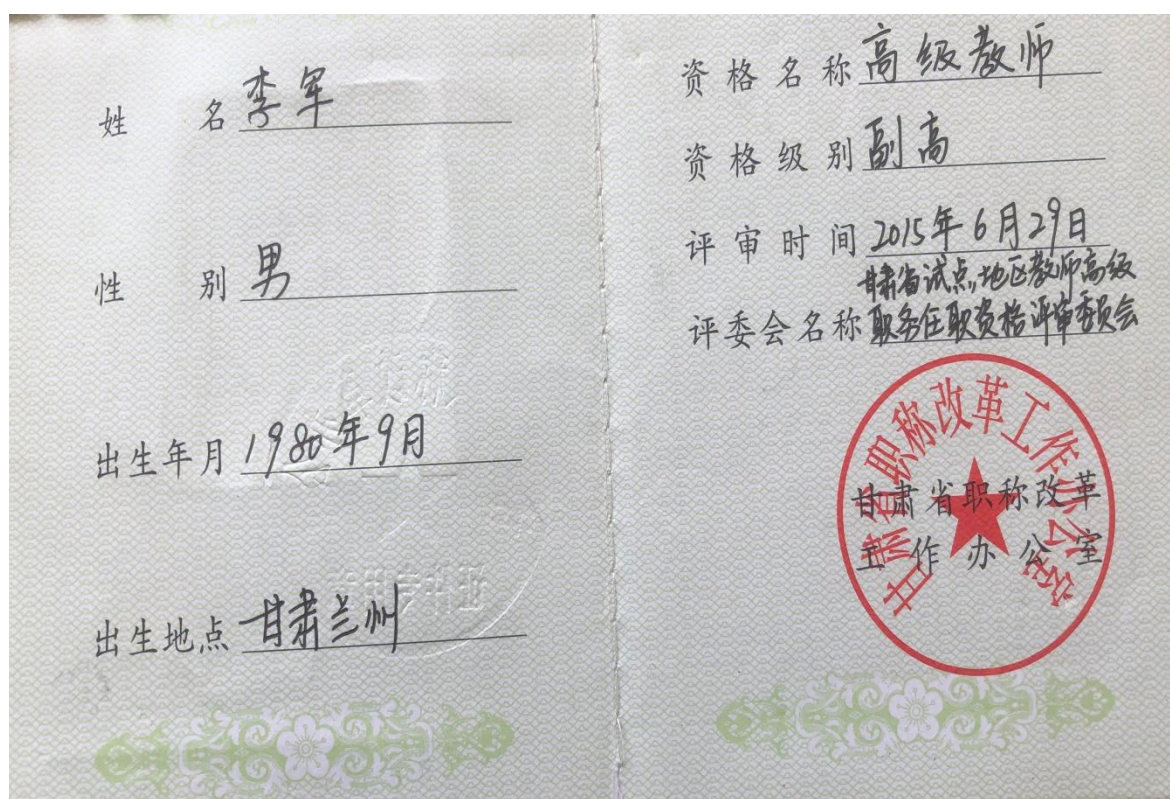 姓 名 李军
性 别 男
出生年月 1980年9月
出生地点 甘肃兰州
资格名称 高级教师
资格级别 副高
评审时间 2015年6月29日
甘肃省试点地区教师高级
评委会名称 职务任职资格评审委员会
甘肃省职称改革工作办公室
甘肃省职称改革
工作办公室